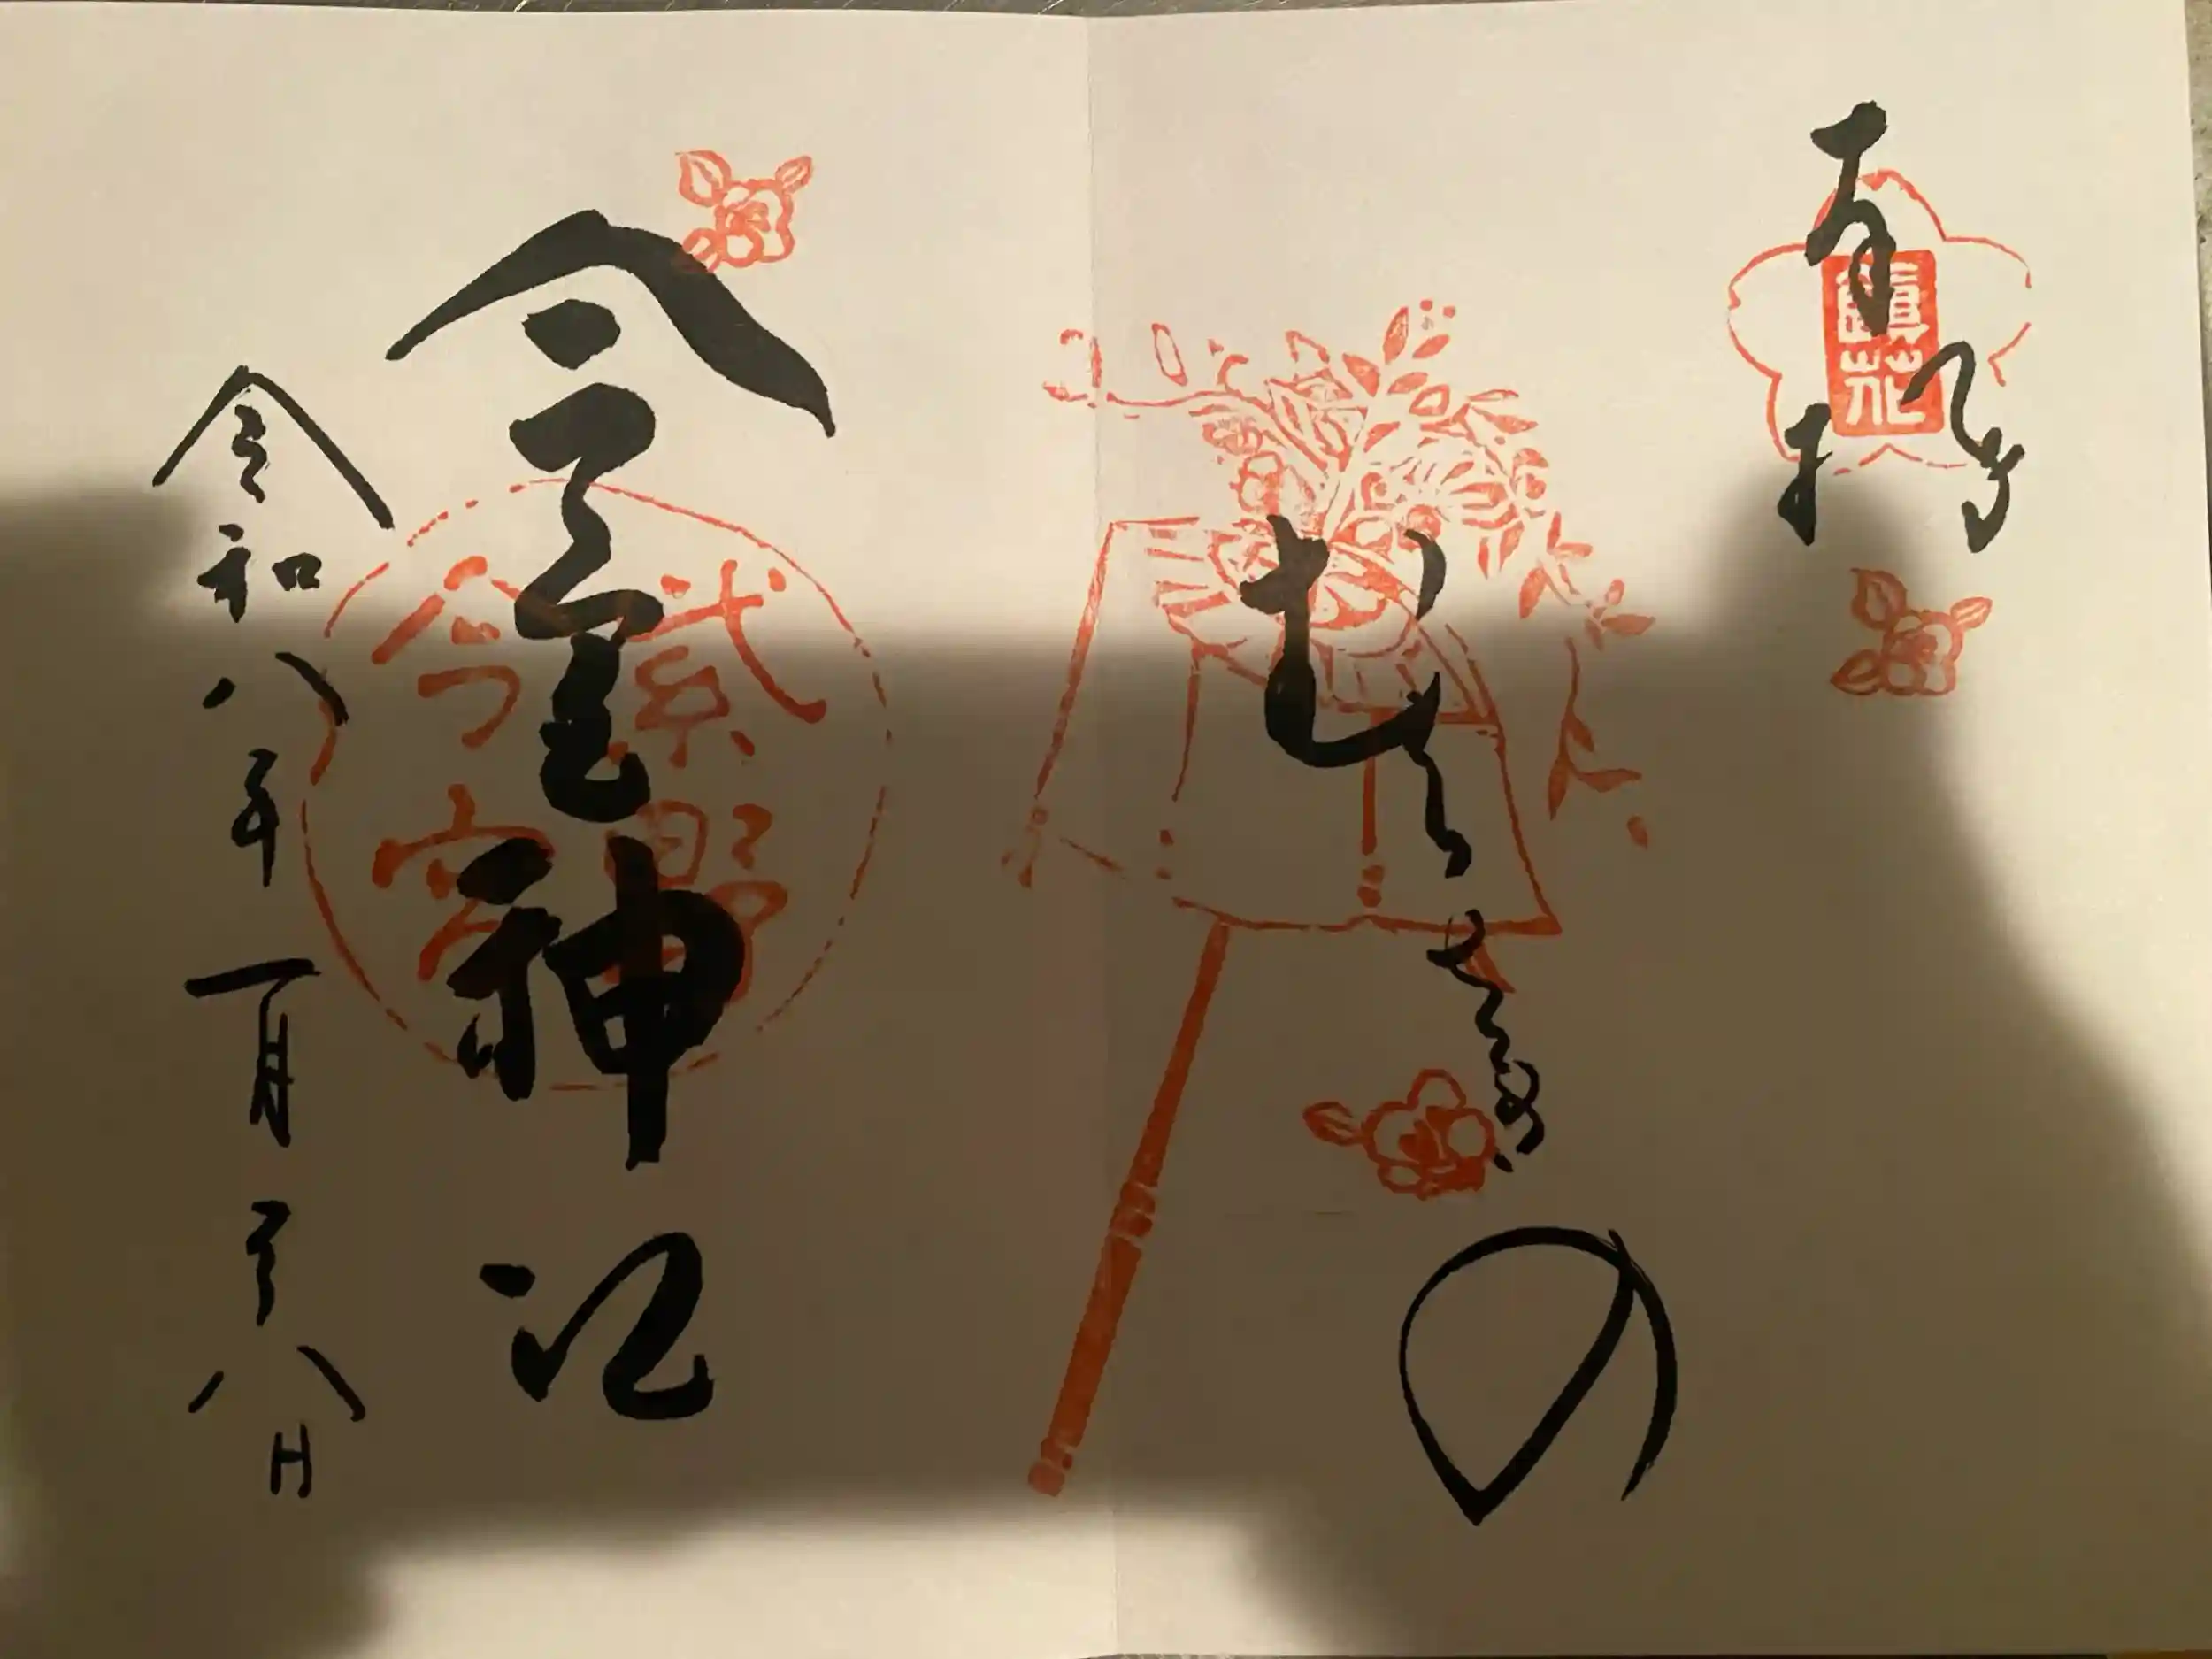 奉拝
鎮花
むらさきの
今宮神社
紫野
今宮
令和八年一月二十八日